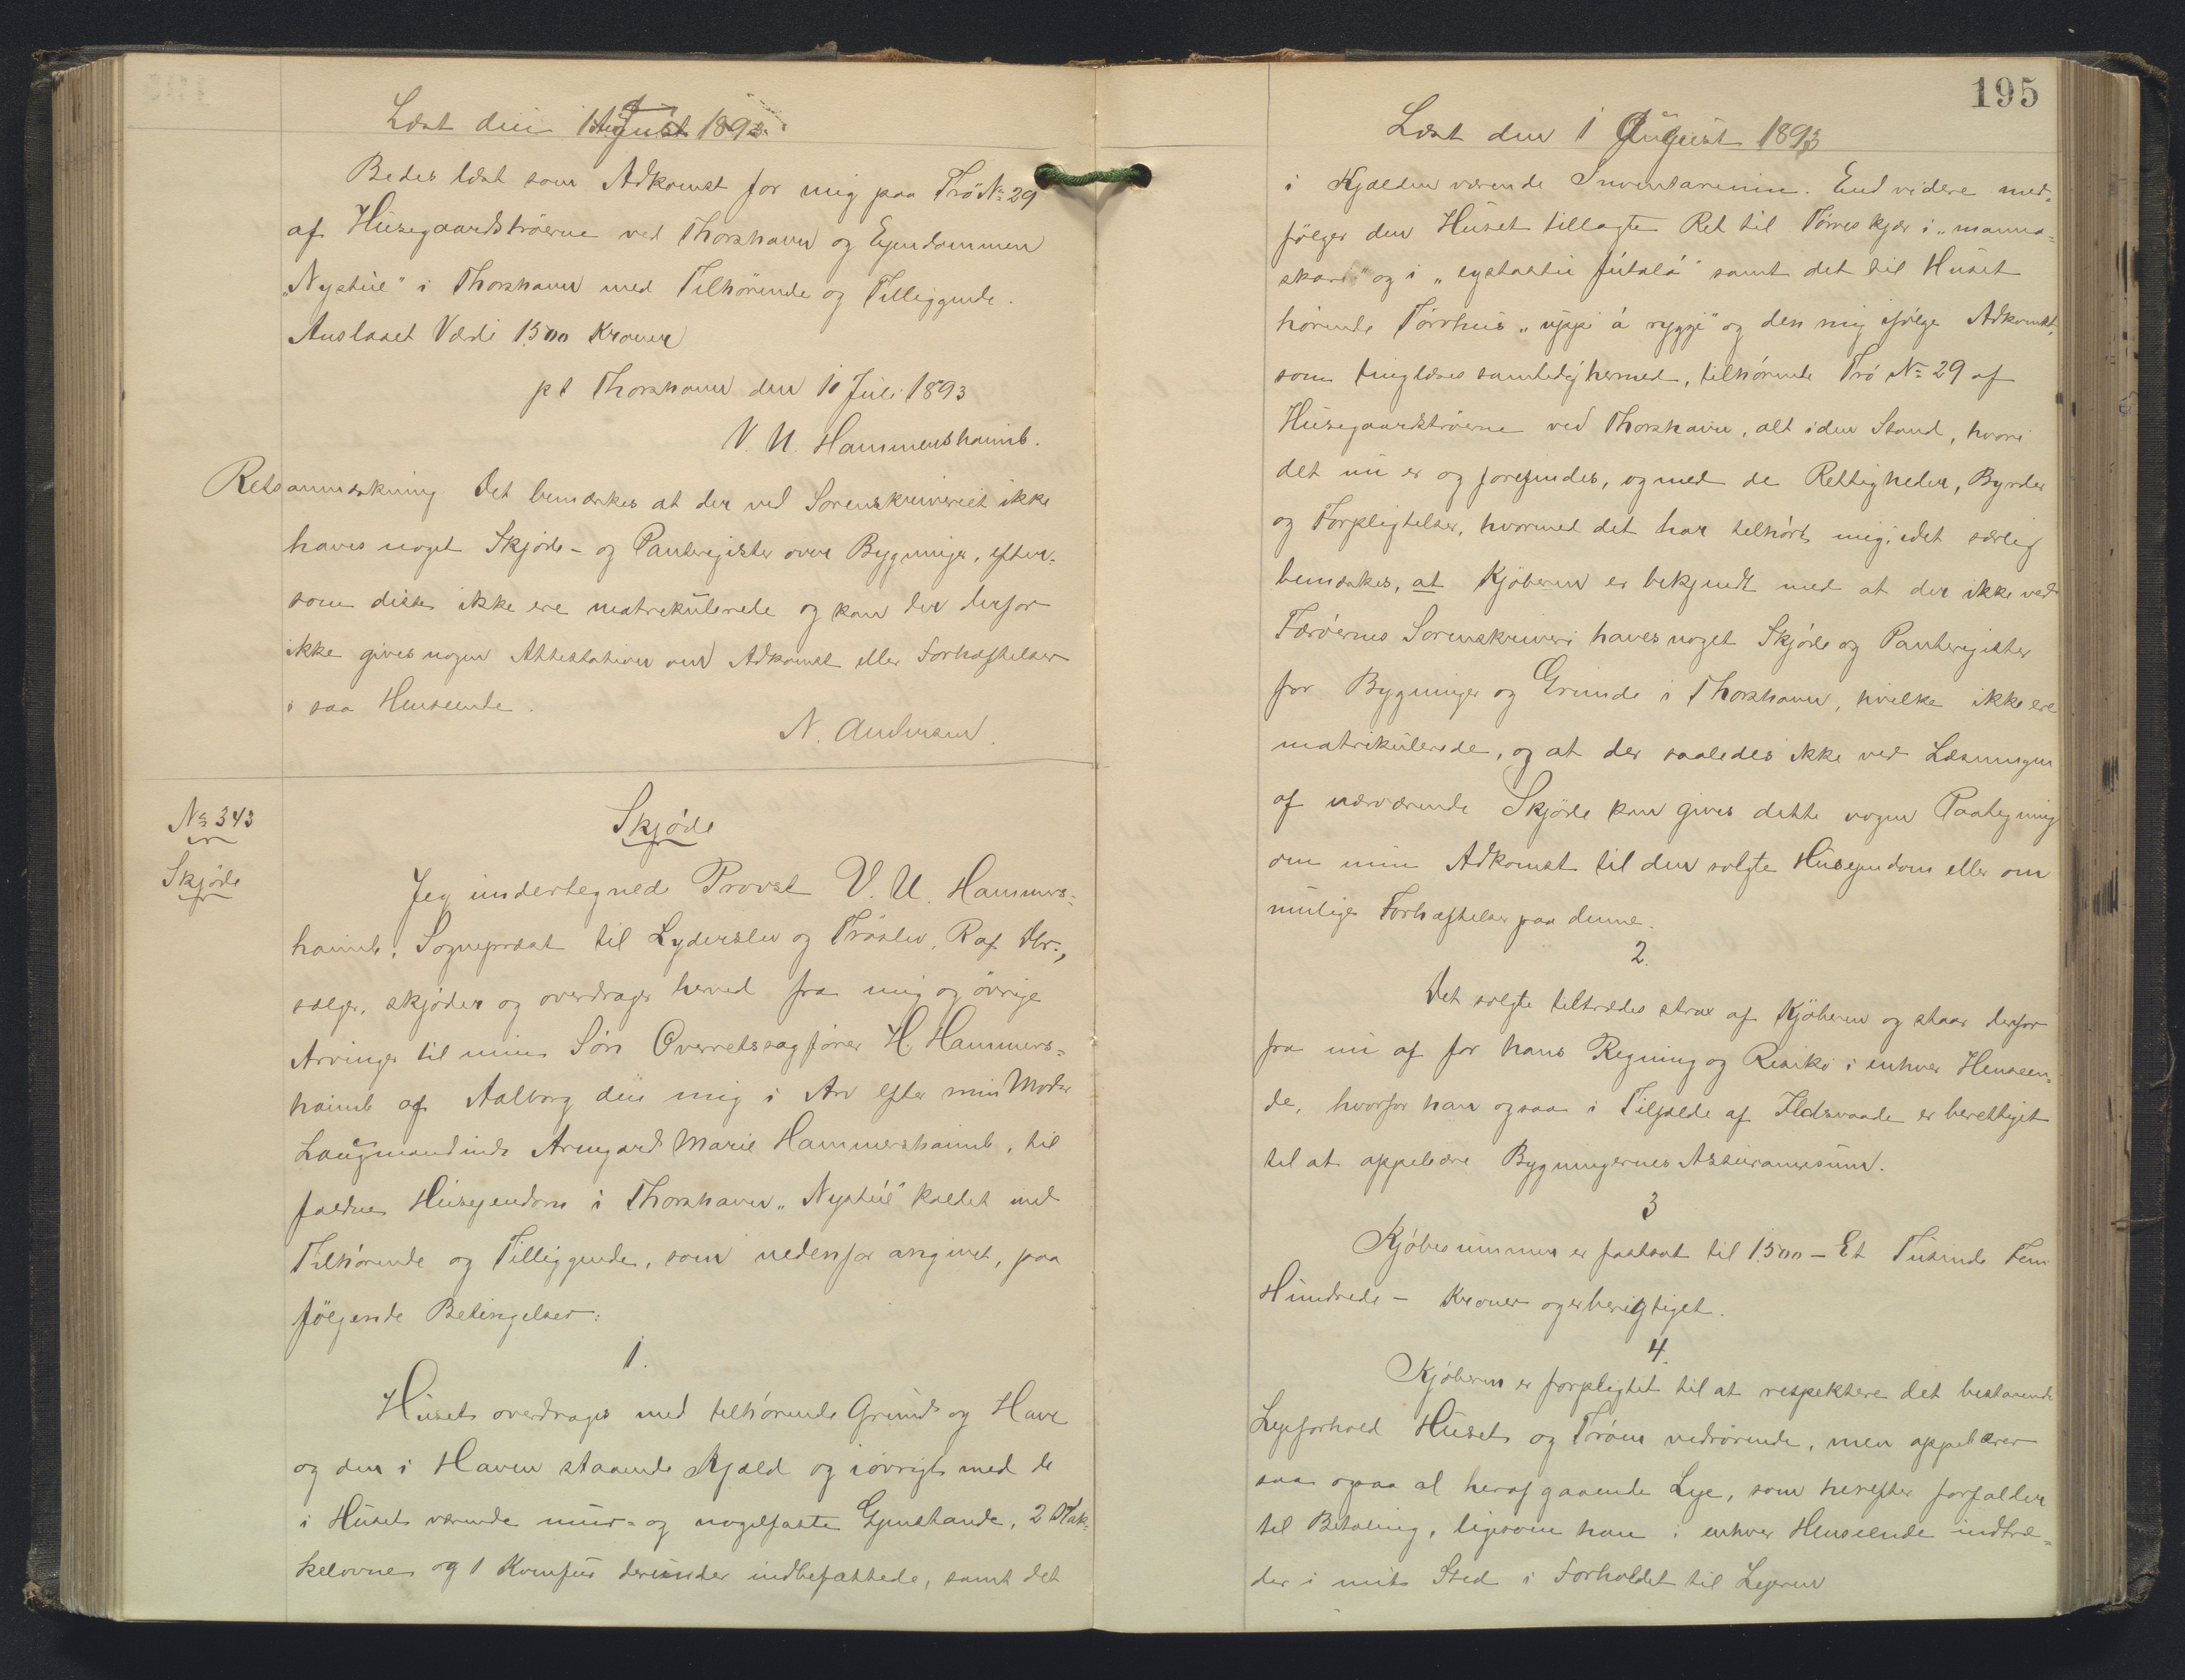 Læst den 1 August 1893.
Bedes læst som Adkomst for mig paa Trö № 29
af Husegaardströerne ved Thorshavn og Ejendommen
„Nystúe" i Thorshavn med Tilhörende og Tilliggende.
Anslaaet Værdi 1500 Kroner
pt Thorshavn den 10 Juli 1893
V. U. Hammershaimb.
Retsanmærkning Det bemærkes at der ved Sorenskriveriet ikke
haves noget Skjöde- og Panteregister over Bygninger, efter-
som disse ikke ere matrikulerede og kan der derfor
ikke gives nogen Attestation om Adkomst eller Forhæftelser
i saa Henseende.
N. Andersen.
№ 343
Skjöde
Skjöde
Jeg undertegnede Provst V. U. Hammers-
haimb, Sognepræst til Lyderslev og Fröslev, R af Dbr.,
sælger, skjöder og overdrager herved fra mig og övrige
Arvinger til min Sön Overretssagförer H. Hammers-
haimb af Aalborg den mig i Arv efter min Moder
Laugmandinde Armgard Marie Hammershaimb, til
faldne Husejendom i Thorshavn „Nystúe" kaldet med
Tilhörende og Tilliggende, som nedenfor angivet, paa
fölgende Betingelser:
1.
Huset overdrages med tilhörende Grund og Have
og den i Haven staaende Kjæld og iövrigt med de
i Huset værende mur- og nagelfaste Gjenstande, 2 Kak-
kelovne og 1 Komfur derunder indbefattede, samt det
195
Læst den 1 August 1893
i Kjælden værende Inventarium. End videre med-
fölger den Huset tillagte Ret til Törveskjær i „manna-
skarð" og i „eystastu fútalá" samt det til Huset
hörende Törvhus „uppi á ryggi" og den mig ifölge Adkomst,
som tinglæses samtidig hermed, tilhörende Trö № 29 af
Husegaardströerne ved Thorshavn, alt i den Stand, hvori
det nu er og forefindes, og med de Rettigheder, Byrder
og Forpligtelser, hvormed det har tilhört mig, idet særlig
bemærkes, at Kjöberen er bekjendt med at der ikke ved
Færöernes Sorenskriveri haves noget Skjöde og Panteregister
for Bygninger og Grunde i Thorshavn, hvilke ikke ere
matrikulerede, og at der saaledes ikke ved Læsningen
af nærværende Skjöde kan gives dette nogen Paategning
om min Adkomst til den solgte Husejendom eller om
mulige Forhæftelser paa denne.
2.
Det solgte tiltrædes strax af Kjöberen og staar derfor
fra nu af for hans Regning og Risiko i enhver Henseen-
de, hvorfor han ogsaa i Tilfælde af Ildsvaade er berettiget
til at oppebære Bygningernes Assurancesum.
3
Kjöbesummen er fastsat til 1500 – Et Tusinde Fem
Hundrede – Kroner og er berigtiget.
4.
Kjöberen er forpligtet til at respektere det bestaaende
Lejeforhold Huset og Tröen vedrörende, men oppebærer
saa ogsaa al heraf gaaende Leje, som herefter forfalder
til Betaling, ligesom han i enhver Henseende indtræ-
der i mit Sted i Forholdet til Lejeren